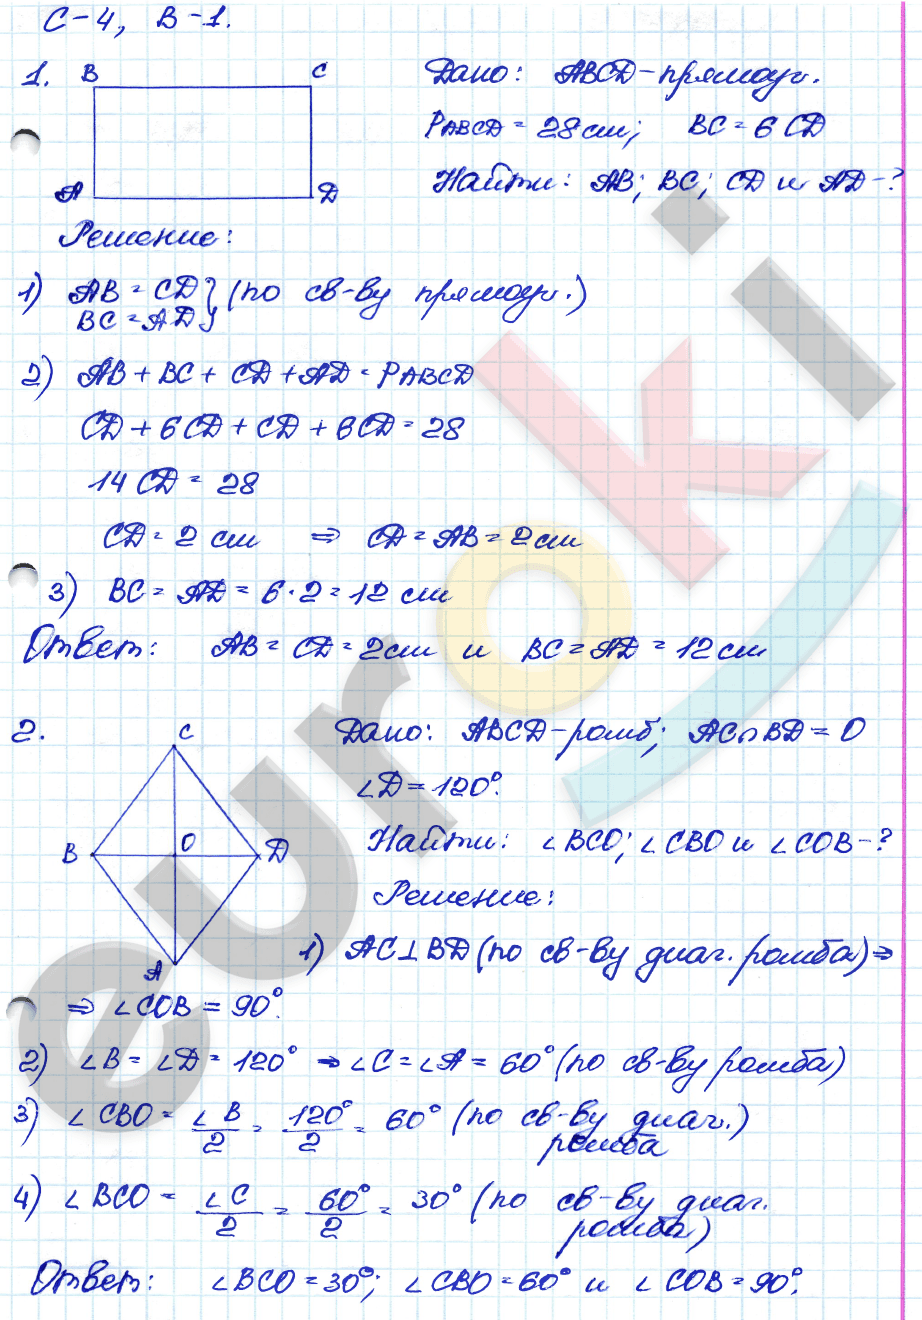 С-4, В-1.
1.
B
C
A
D
Дано: ABCD-прямоуг.
PABCD = 28см; BC = 6 CD
Найти: AB; BC; CD и AD-?
Решение:
1) AB = CD } (по св-ву прямоуг.)
BC = AD }
2) AB + BC + CD + AD = PABCD
CD + 6CD + CD + 6CD = 28
14 CD = 28
CD = 2 см ⇒ CD = AB = 2см
3) BC = AD = 6·2 = 12 см
Ответ: AB = CD = 2см и BC = AD = 12см
2.
C
B
O
D
A
Дано: ABCD-ромб; AC∩BD = O
∠D = 120°.
Найти: ∠BCO; ∠CBO и ∠COB-?
Решение:
1) AC⊥BD (по св-ву диаг. ромба) ⇒
⇒ ∠COB = 90°.
2) ∠B = ∠D = 120° ⇒ ∠C = ∠A = 60° (по св-ву ромба)
3) ∠CBO = ∠B/2 = 120°/2 = 60° (по св-ву диаг.)
ромба
4) ∠BCO = ∠C/2 = 60°/2 = 30° (по св-ву диаг.
ромба)
Ответ: ∠BCO = 30°; ∠CBO = 60° и ∠COB = 90°.
euroki